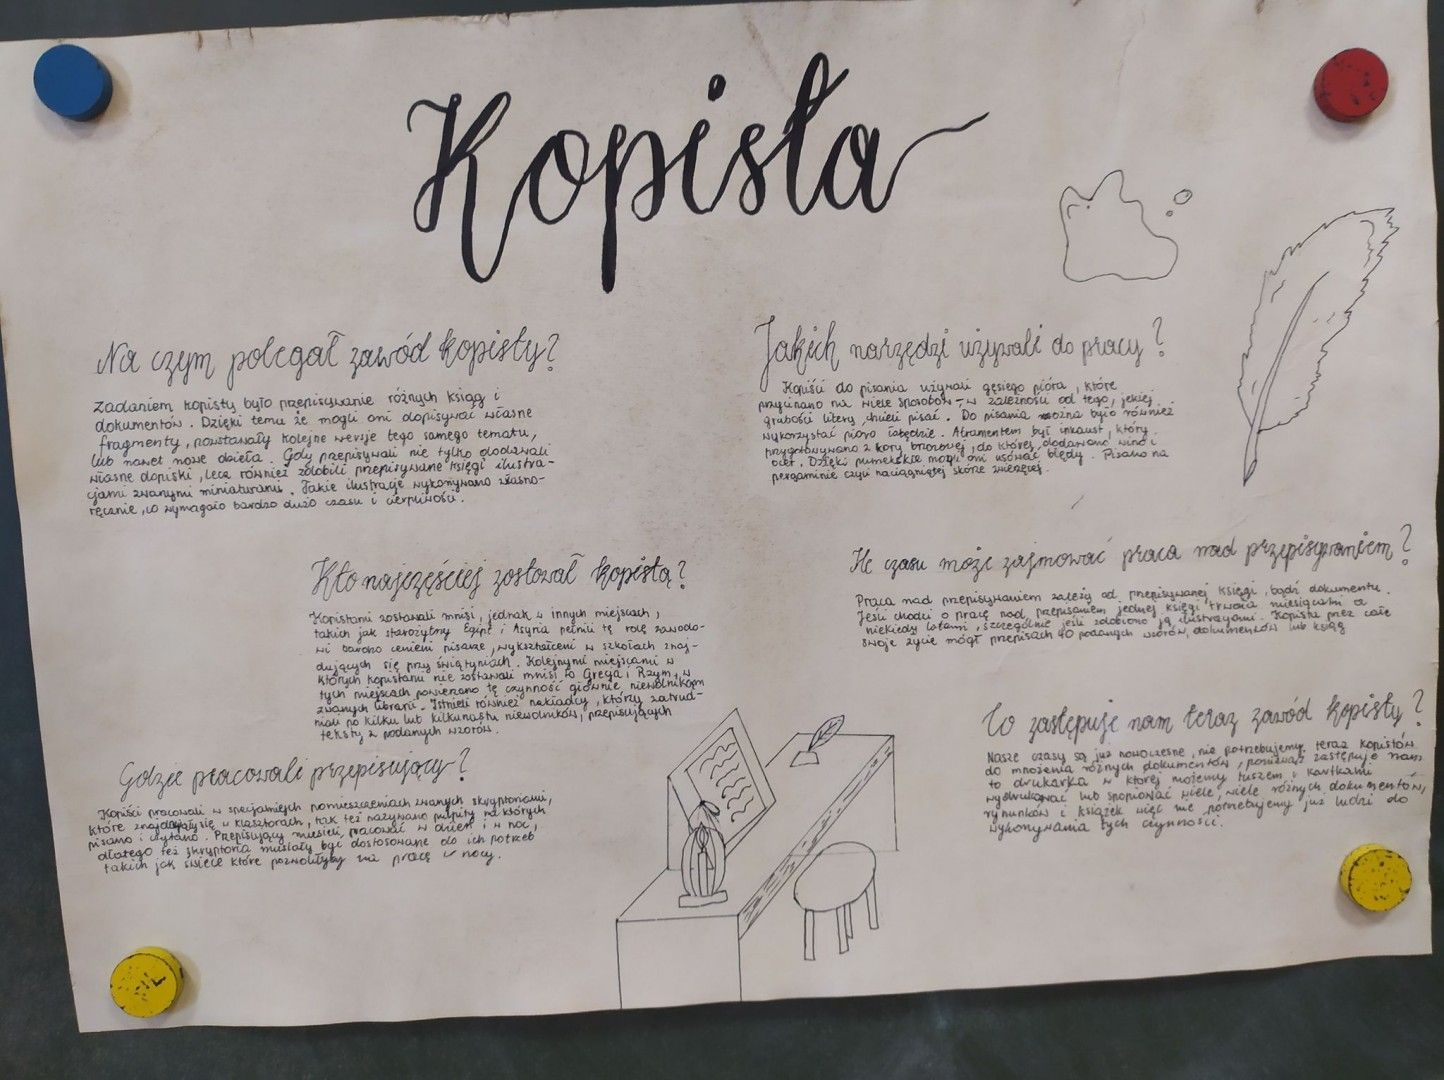 Kopista
Na czym polegał zawód kopisty?
Zadaniem kopisty było przepisywanie różnych ksiąg i
dokumentów. Dzięki temu że mogli oni dopisywać własne
fragmenty, powstawały kolejne wersje tego samego tematu,
lub nawet nowe dzieła. Gdy przepisywali nie tylko dodawali
własne dopiski, lecz również zdobili przepisywane księgi ilustra-
cjami zwanymi miniaturami. Takie ilustracje wykonywano własno-
ręcznie, co wymagało bardzo dużo czasu i cierpliwości.
Kto najczęściej zostawał kopistą?
Kopistami zostawali mnisi, jednak w innych miejscach,
takich jak starożytny Egipt i Asyria pełnili tę rolę zawodo-
wi bardzo cenieni pisarze, wykształceni w szkołach znaj-
dujących się przy świątyniach. Kolejnymi miejscami w
których kopistami nie zostawali mnisi to Grecja i Rzym, w
tych miejscach powierzano tę czynność głównie niewolnikom
zwanych librarii. Istnieli również nakładcy, którzy zatrud-
niali po kilku lub kilkunastu niewolników, przepisujących
teksty z podanych wzorów.
Gdzie pracowali przepisujący?
Kopiści pracowali w specjalnych pomieszczeniach zwanych skryptoriami,
które znajdowały się w klasztorach, tak też nazywano pulpity na których
pisano i czytano. Przepisujący musieli pracować w dzień i w noc,
dlatego też skryptoria musiały być dostosowane do ich potrzeb
takich jak świece które pozwoliłyby na pracę w nocy.
Jakich narzędzi używali do pracy?
Kopiści do pisania używali gęsiego pióra, które
przycinano na wiele sposobów w zależności od tego, jakiej
grubości litery chcieli pisać. Do pisania można było również
wykorzystać pióro łabędzie. Atramentem był inkaust, który
przygotowywano z kory bronowej, do której dodawano wino i
ocet. Dzięki pumeksie mogli oni usówać błędy. Pisano na
pergaminie czyli naciągniętej skórze zwierzęcej.
Ile czasu może zajmować praca nad przepisywaniem?
Praca nad przepisywaniem zależy od przepisywanej księgi, bądź dokumentu.
Jeśli chodzi o pracę nad przepisaniem jednej księgi trwała miesiącami a
niekiedy latami, szczególnie jeśli zdobiono ją ilustracjami. Kopista przez całe
swoje życie mógł przepisach 40 podanych wzorów, dokumentów lub ksiąg
Co zastępuje nam teraz zawód kopisty?
Nasze czasy są już nowoczesne, nie potrzebujemy teraz kopistów
do mnożenia różnych dokumentów, ponieważ zastępuje nam
to drukarka w której możemy tuszem i kartkami
wydrukować lub skopiować wiele, wiele różnych dokumentów,
rysunków i książek więc nie potrzebujemy już ludzi do
wykonywania tych czynności.